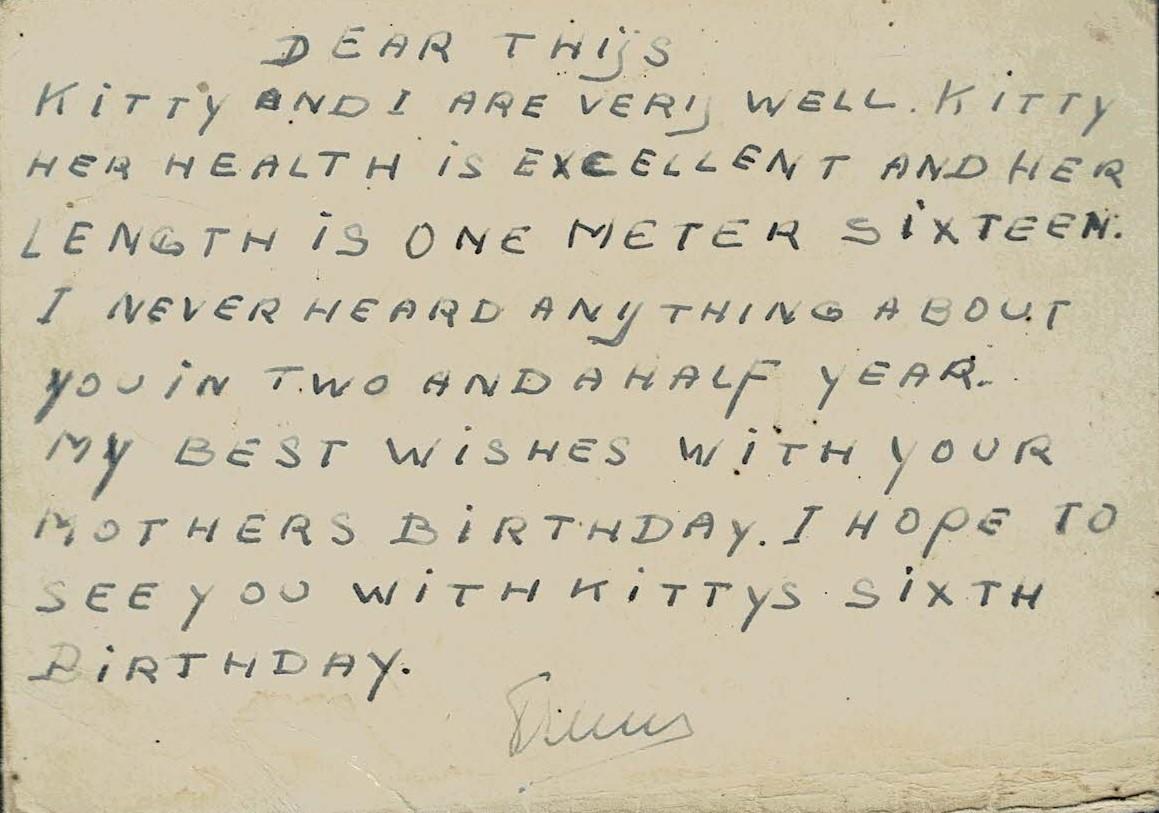 DEAR THIJS
KITTY AND I ARE VERIJ WELL. KITTY
HER HEALTH IS EXCELLENT AND HER
LENGTH IS ONE METER SIXTEEN.
I NEVER HEARD ANYTHING ABOUT
YOU IN TWO AND A HALF YEAR.
MY BEST WISHES WITH YOUR
MOTHERS BIRTHDAY. I HOPE TO
SEE YOU WITH KITTYS SIXTH
BIRTHDAY.